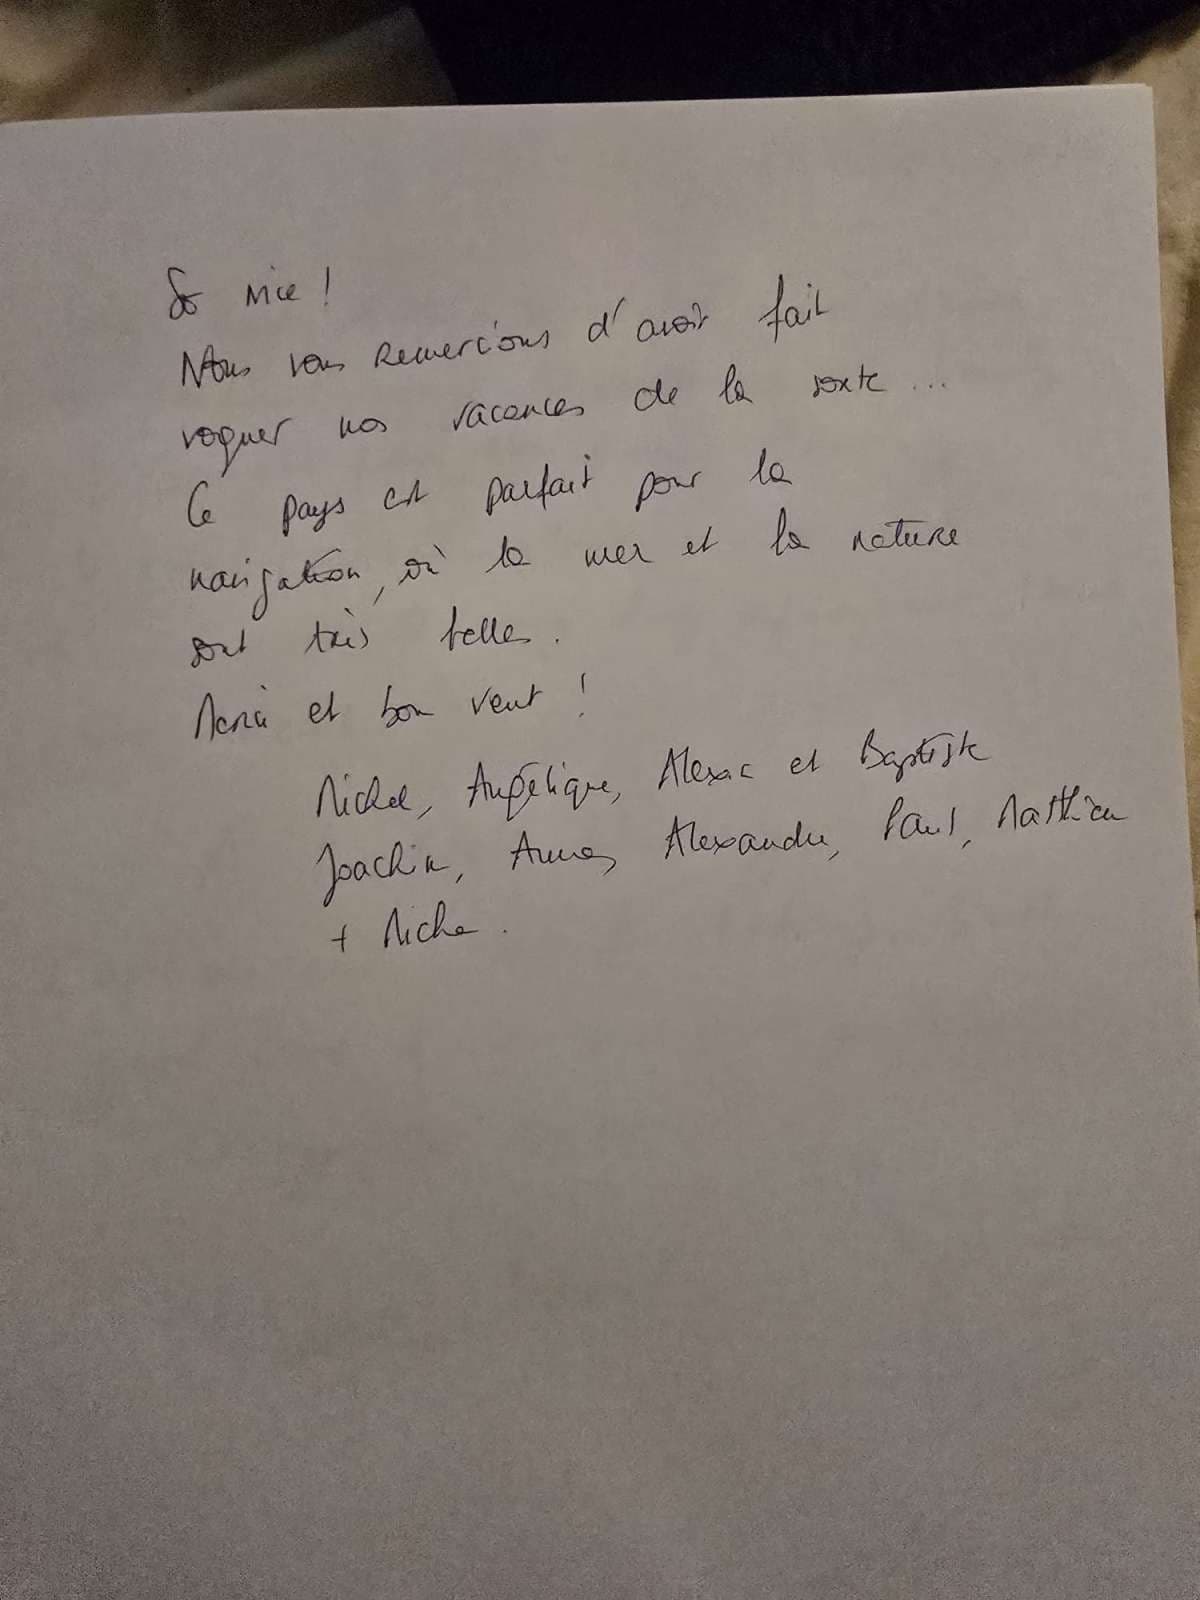 So nice !
Nous vous remercions d'avoir fait
voguer nos vacances de la sorte ...
Ce pays est parfait pour la
navigation, où la mer et la nature
sont très belles .
Merci et bon vent !
Michel, Angélique, et Baptiste
Joachim, Anne, Alexandre, Paul, Matthieu
+